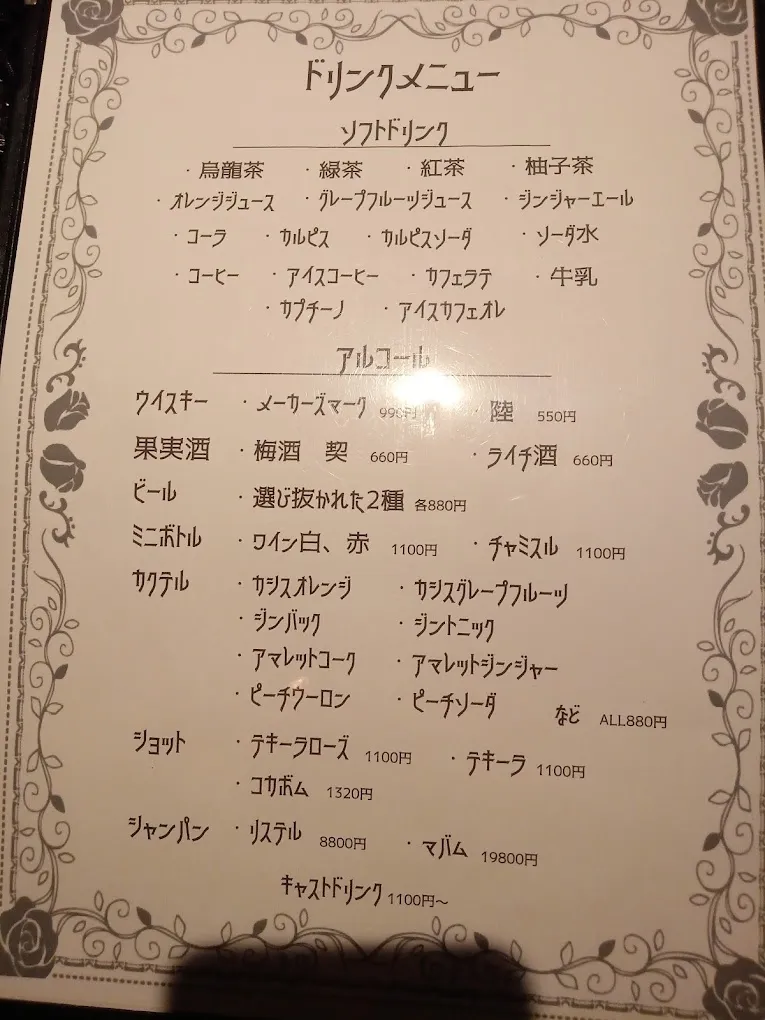 ドリンクメニュー
ソフトドリンク
・烏龍茶 ・緑茶 ・紅茶 ・柚子茶
・オレンジジュース ・グレープフルーツジュース ・ジンジャーエール
・コーラ ・カルピス ・カルピスソーダ ・ソーダ水
・コーヒー ・アイスコーヒー ・カフェラテ ・牛乳
・カプチーノ ・アイスカフェオレ
アルコール
ウイスキー ・メーカーズマーク 990円 ・陸 550円
果実酒 ・梅酒 契 660円 ・ライチ酒 660円
ビール ・選び抜かれた2種 各880円
ミニボトル ・ワイン白、赤 1100円 ・チャミスル 1100円
カクテル ・カシスオレンジ ・カシスグレープフルーツ
・ジンバック ・ジントニック
・アマレットコーク ・アマレットジンジャー
・ピーチウーロン ・ピーチソーダ など ALL880円
ショット ・テキーラローズ 1100円 ・テキーラ 1100円
・コカボム 1320円
シャンパン ・リステル 8800円 ・マバム 19800円
キャストドリンク 1100円~